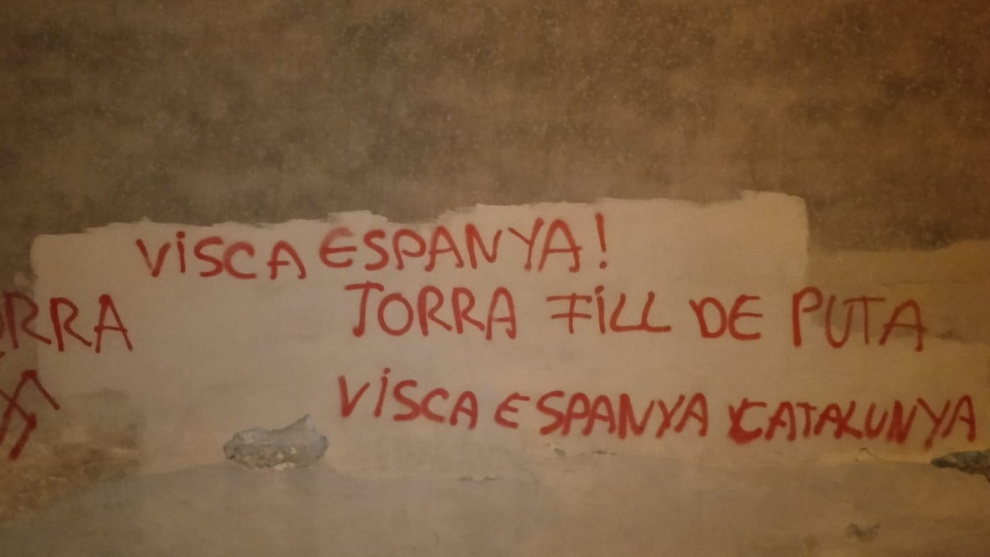 VISCA ESPANYA!
ORRA
TORRA FILL DE PUTA
VISCA ESPANYA Y CATALUNYA